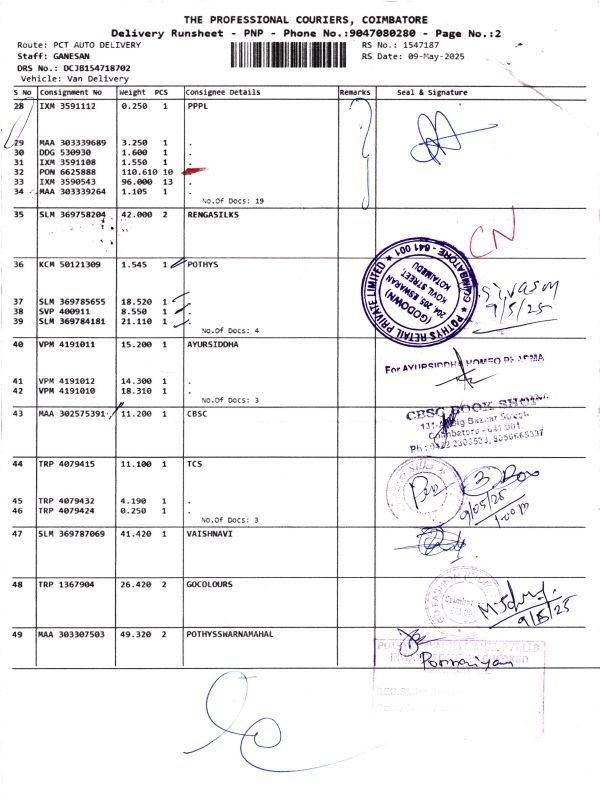 THE PROFESSIONAL COURIERS, COIMBATORE
Delivery Runsheet - PNP - Phone No.:9047080280 - Page No.:2
Route: PCT AUTO DELIVERY
RS No.: 1547187
Staff: GANESAN
RS Date: 09-May-2025
DRS No.: DCJB154718702
Vehicle: Van Delivery
S No Consignment No Weight PCS Consignee Details Remarks Seal & Signature
28 IXM 3591112 0.250 1 PPPL
29 MAA 303339689 3.250 1 .
30 DDG 530930 1.600 1 .
31 IXM 3591108 1.550 1 .
32 PON 6625888 110.610 10
33 IXM 3590543 96.000 13 .
34 MAA 303339264 1.105 1 .
No.Of Docs: 19
35 SLM 369758204 42.000 2 RENGASILKS
CN
36 KCM 50121309 1.545 1 POTHYS
POTHYS RETAIL PRIVATE LIMITED
(GODOWN)
204, 205, ESWARAN
KOVIL STREET,
KOTAIMEDU
COIMBATORE - 641 001
37 SLM 369785655 18.520 1 .
38 SVP 400911 8.550 1 .
9/5/25
39 SLM 369784181 21.110 1 .
No.Of Docs: 4
40 VPM 4191011 15.200 1 AYURSIDDHA
For AYURSIDDHA HOMEO PHARMA
41 VPM 4191012 14.300 1 .
42 VPM 4191010 18.310 1 .
No.Of Docs: 3
43 MAA 302575391 11.200 1 CBSC
CBSC BOOK SHOP
Big Bazaar Street
Coimbatore - 641 001.
44 TRP 4079415 11.100 1 TCS
3 Box
9/05/25
1:00 pm
45 TRP 4079432 4.190 1 .
46 TRP 4079424 0.250 1 .
No.Of Docs: 3
47 SLM 369787069 41.420 1 VAISHNAVI
48 TRP 1367904 26.420 2 GOCOLOURS
Coimbatore
9/5/25
49 MAA 303307503 49.320 2 POTHYSSWARNAMAHAL